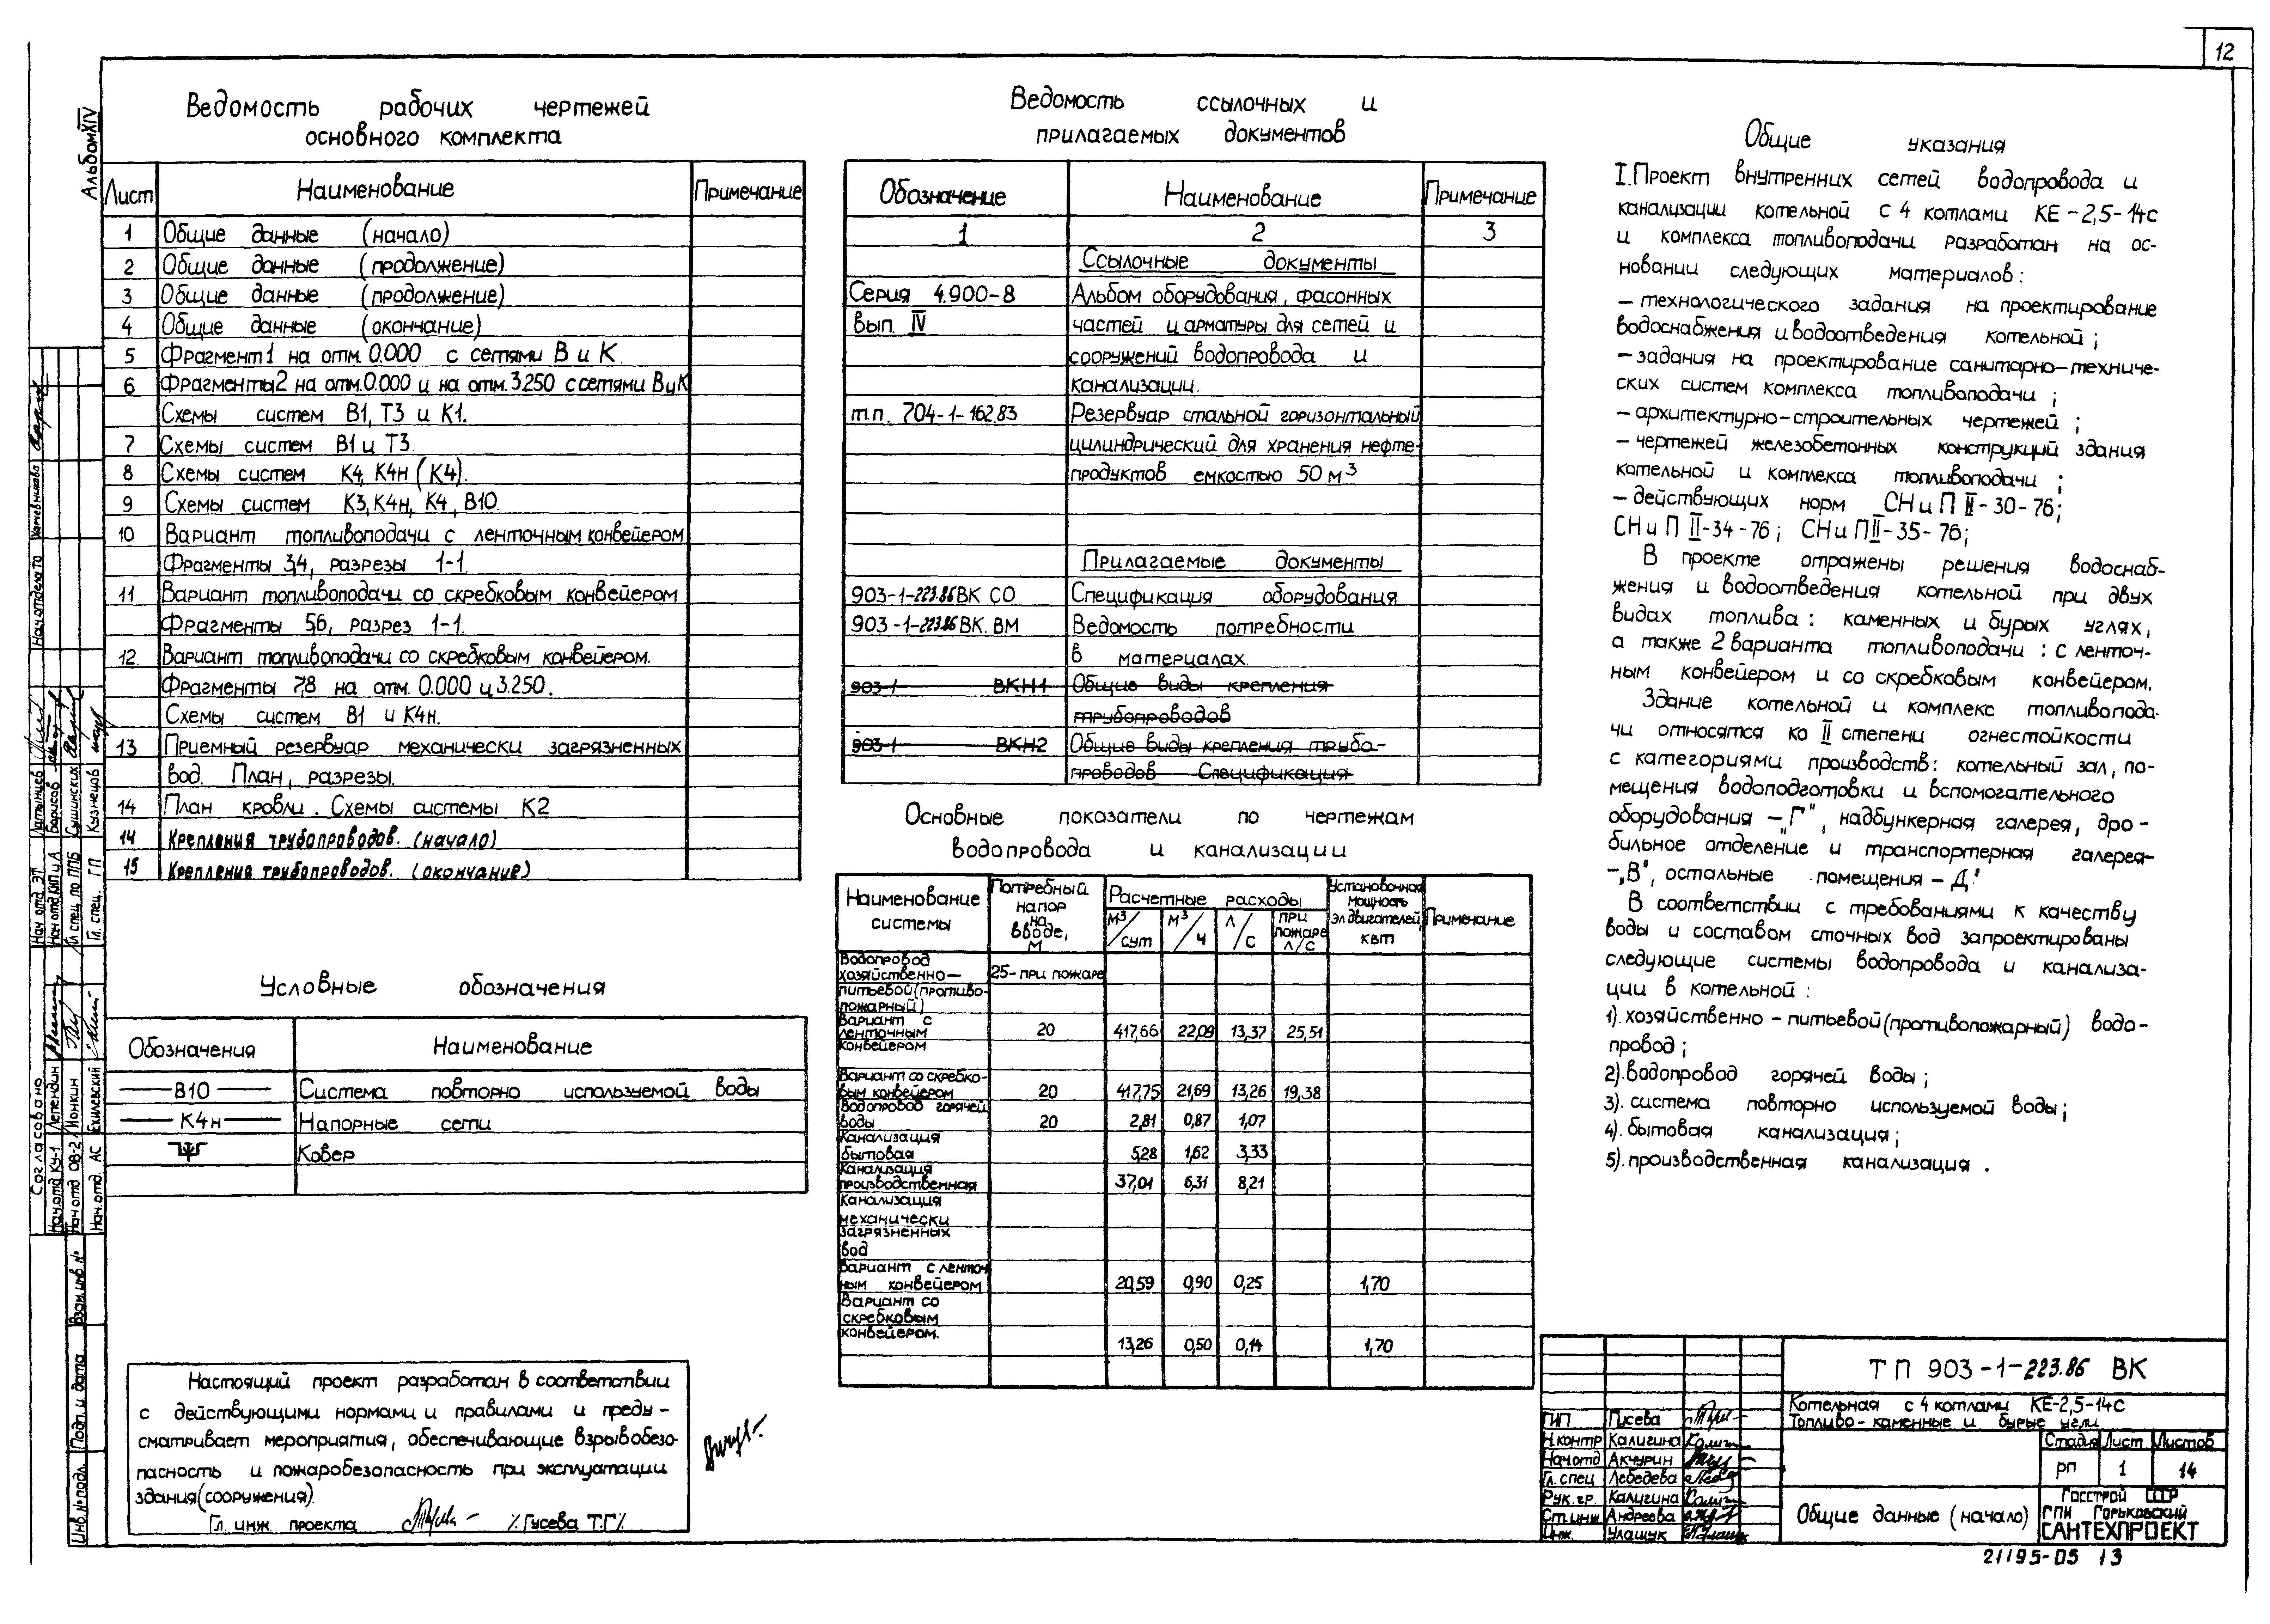 12
Альбом XIV
Ведомость рабочих чертежей
основного комплекта
Лист Наименование Примечание
1 Общие данные (начало)
2 Общие данные (продолжение)
3 Общие данные (продолжение)
4 Общие данные (окончание)
5 Фрагмент 1 на отм. 0.000 с сетями В и К.
6 Фрагменты 2 на отм. 0.000 и на отм. 3.250 с сетями В и К
Схемы систем В1, Т3 и К1.
7 Схемы систем В1 и Т3.
8 Схемы систем К4, К4н (К4).
9 Схемы систем К3, К4н, К4, В10.
10 Вариант топливоподачи с ленточным конвейером
Фрагменты 3,4, разрезы 1-1.
11 Вариант топливоподачи со скребковым конвейером
Фрагменты 5,6, разрез 1-1.
12. Вариант топливоподачи со скребковым конвейером.
Фрагменты 7,8 на отм. 0.000 и 3.250.
Схемы систем В1 и К4н.
13 Приемный резервуар механически загрязненных
вод. План, разрезы.
14 План кровли. Схемы системы К2
14 Крепления трубопроводов. (начало)
15 Крепления трубопроводов. (окончание)
Условные обозначения
Обозначения Наименование
В10 Система повторно используемой воды
К4н Напорные сети
Ковер
Настоящий проект разработан в соответствии
с действующими нормами и правилами и преду-
сматривает мероприятия, обеспечивающие взрывобезо-
пасность и пожаробезопасность при эксплуатации
здания (сооружения).
Гл. инж. проекта /Гусева Т.Г/.
Ведомость ссылочных и
прилагаемых документов
Обозначение Наименование Примечание
1 2 3
Ссылочные документы
Серия 4.900-8 Альбом оборудования, фасонных
вып. IV частей и арматуры для сетей и
сооружений водопровода и
канализации.
т.п. 704-1-162.83 Резервуар стальной горизонтальный
цилиндрический для хранения нефте-
продуктов емкостью 50 м³
Прилагаемые документы
903-1-223.86 ВК СО Спецификация оборудования
903-1-223.86 ВК. ВМ Ведомость потребности
в материалах.
903-1- ВКН1 Общие виды крепления
трубопроводов
903-1 ВКН2 Общие виды крепления трубо-
проводов Спецификация
Основные показатели по чертежам
водопровода и канализации
Наименование системы Потребный напор на вводе, м Расчетные расходы Установочная мощность эл двигателей, квт Примечание
м³/сут м³/ч л/с при пожаре л/с
Водопровод
хозяйственно- 25- при пожаре
питьевой (противо-
пожарный)
Вариант с
ленточным 20 417,66 22,09 13,37 25,51
конвейером
Вариант со скребко-
вым конвейером 20 417,75 21,69 13,26 19,38
Водопровод горячей
воды 20 2,81 0,87 1,07
Канализация
бытовая 5,28 1,62 3,33
Канализация
производственная 37,01 6,31 8,21
Канализация
механически
загрязненных
вод
Вариант с ленточ
ным конвейером 20,59 0,90 0,25 1,70
Вариант со
скребковым
конвейером. 13,26 0,50 0,14 1,70
Общие указания
I. Проект внутренних сетей водопровода и
канализации котельной с 4 котлами КЕ-2,5-14с
и комплекса топливоподачи разработан на ос-
новании следующих материалов:
- технологического задания на проектирование
водоснабжения и водоотведения котельной;
- задания на проектирование санитарно-техниче-
ских систем комплекса топливоподачи;
- архитектурно-строительных чертежей;
- чертежей железобетонных конструкций здания
котельной и комплекса топливоподачи;
- действующих норм СНиП II-30-76;
СНиП II-34-76; СНиП II-35-76;
В проекте отражены решения водоснаб-
жения и водоотведения котельной при двух
видах топлива: каменных и бурых углях,
а также 2 варианта топливоподачи: с ленточ-
ным конвейером и со скребковым конвейером.
Здание котельной и комплекс топливопода-
чи относятся ко II степени огнестойкости
с категориями производств: котельный зал, по-
мещения водоподготовки и вспомогательного
оборудования - „Г", надбункерная галерея, дро-
бильное отделение и транспортерная галерея-
-„В", остальные помещения - „Д".
В соответствии с требованиями к качеству
воды и составом сточных вод запроектированы
следующие системы водопровода и канализа-
ции в котельной:
1). хозяйственно-питьевой (противопожарный) водо-
провод;
2). водопровод горячей воды;
3). система повторно используемой воды;
4). бытовая канализация;
5). производственная канализация.
ТП 903-1-223.86 ВК
Котельная с 4 котлами КЕ-2,5-14с
Топливо-каменные и бурые угли
Стадия Лист Листов
РП 1 14
Общие данные (начало)
Госстрой СССР
ГПИ Горьковский
САНТЕХПРОЕКТ
ГИП Гусева
Н.контр Калигина
Нач.отд Акчурин
Гл. спец Лебедева
Рук. гр. Калигина
Ст.инж Андреева
Инж. Улащук
21195-05 13
Согласовано
Нач.отд КУ-1 Лепендин
Нач отд ОВ-2 Ионкин
Нач. отд. АС Ехилевский
Нач отд ЭТ Латынцев
Нач отд КИПиА Борисов
Гл спец по ППБ Сушинских
Гл. спец. ГП Кузнецов
Нач отдела ТО
Взам. инв. №
Подп. и дата
Инв. № подл.